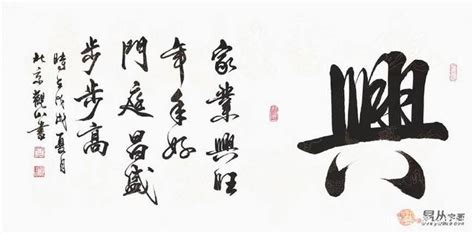 興
家業興旺
年年好
門庭昌盛
步步高
戊戌夏月
北京觀山書
易从字画